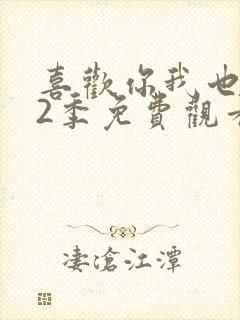 喜歡你我也
2季免費觀
淒滄江潭